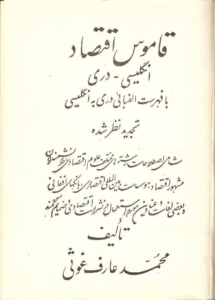 قاموس اقتصاد
انگلیسی - دری
با فهرست الفبائی دری به انگلیسی
تجدید نظر شده
شامل اصطلاحات رشته های مختلف علوم اقتصادی
مشهور اقتصاد موسسات بین المللی اقتصادی بانکهای افغانی
و بعضی لغات و عناوین
تألیف
محمد عارف غوثی